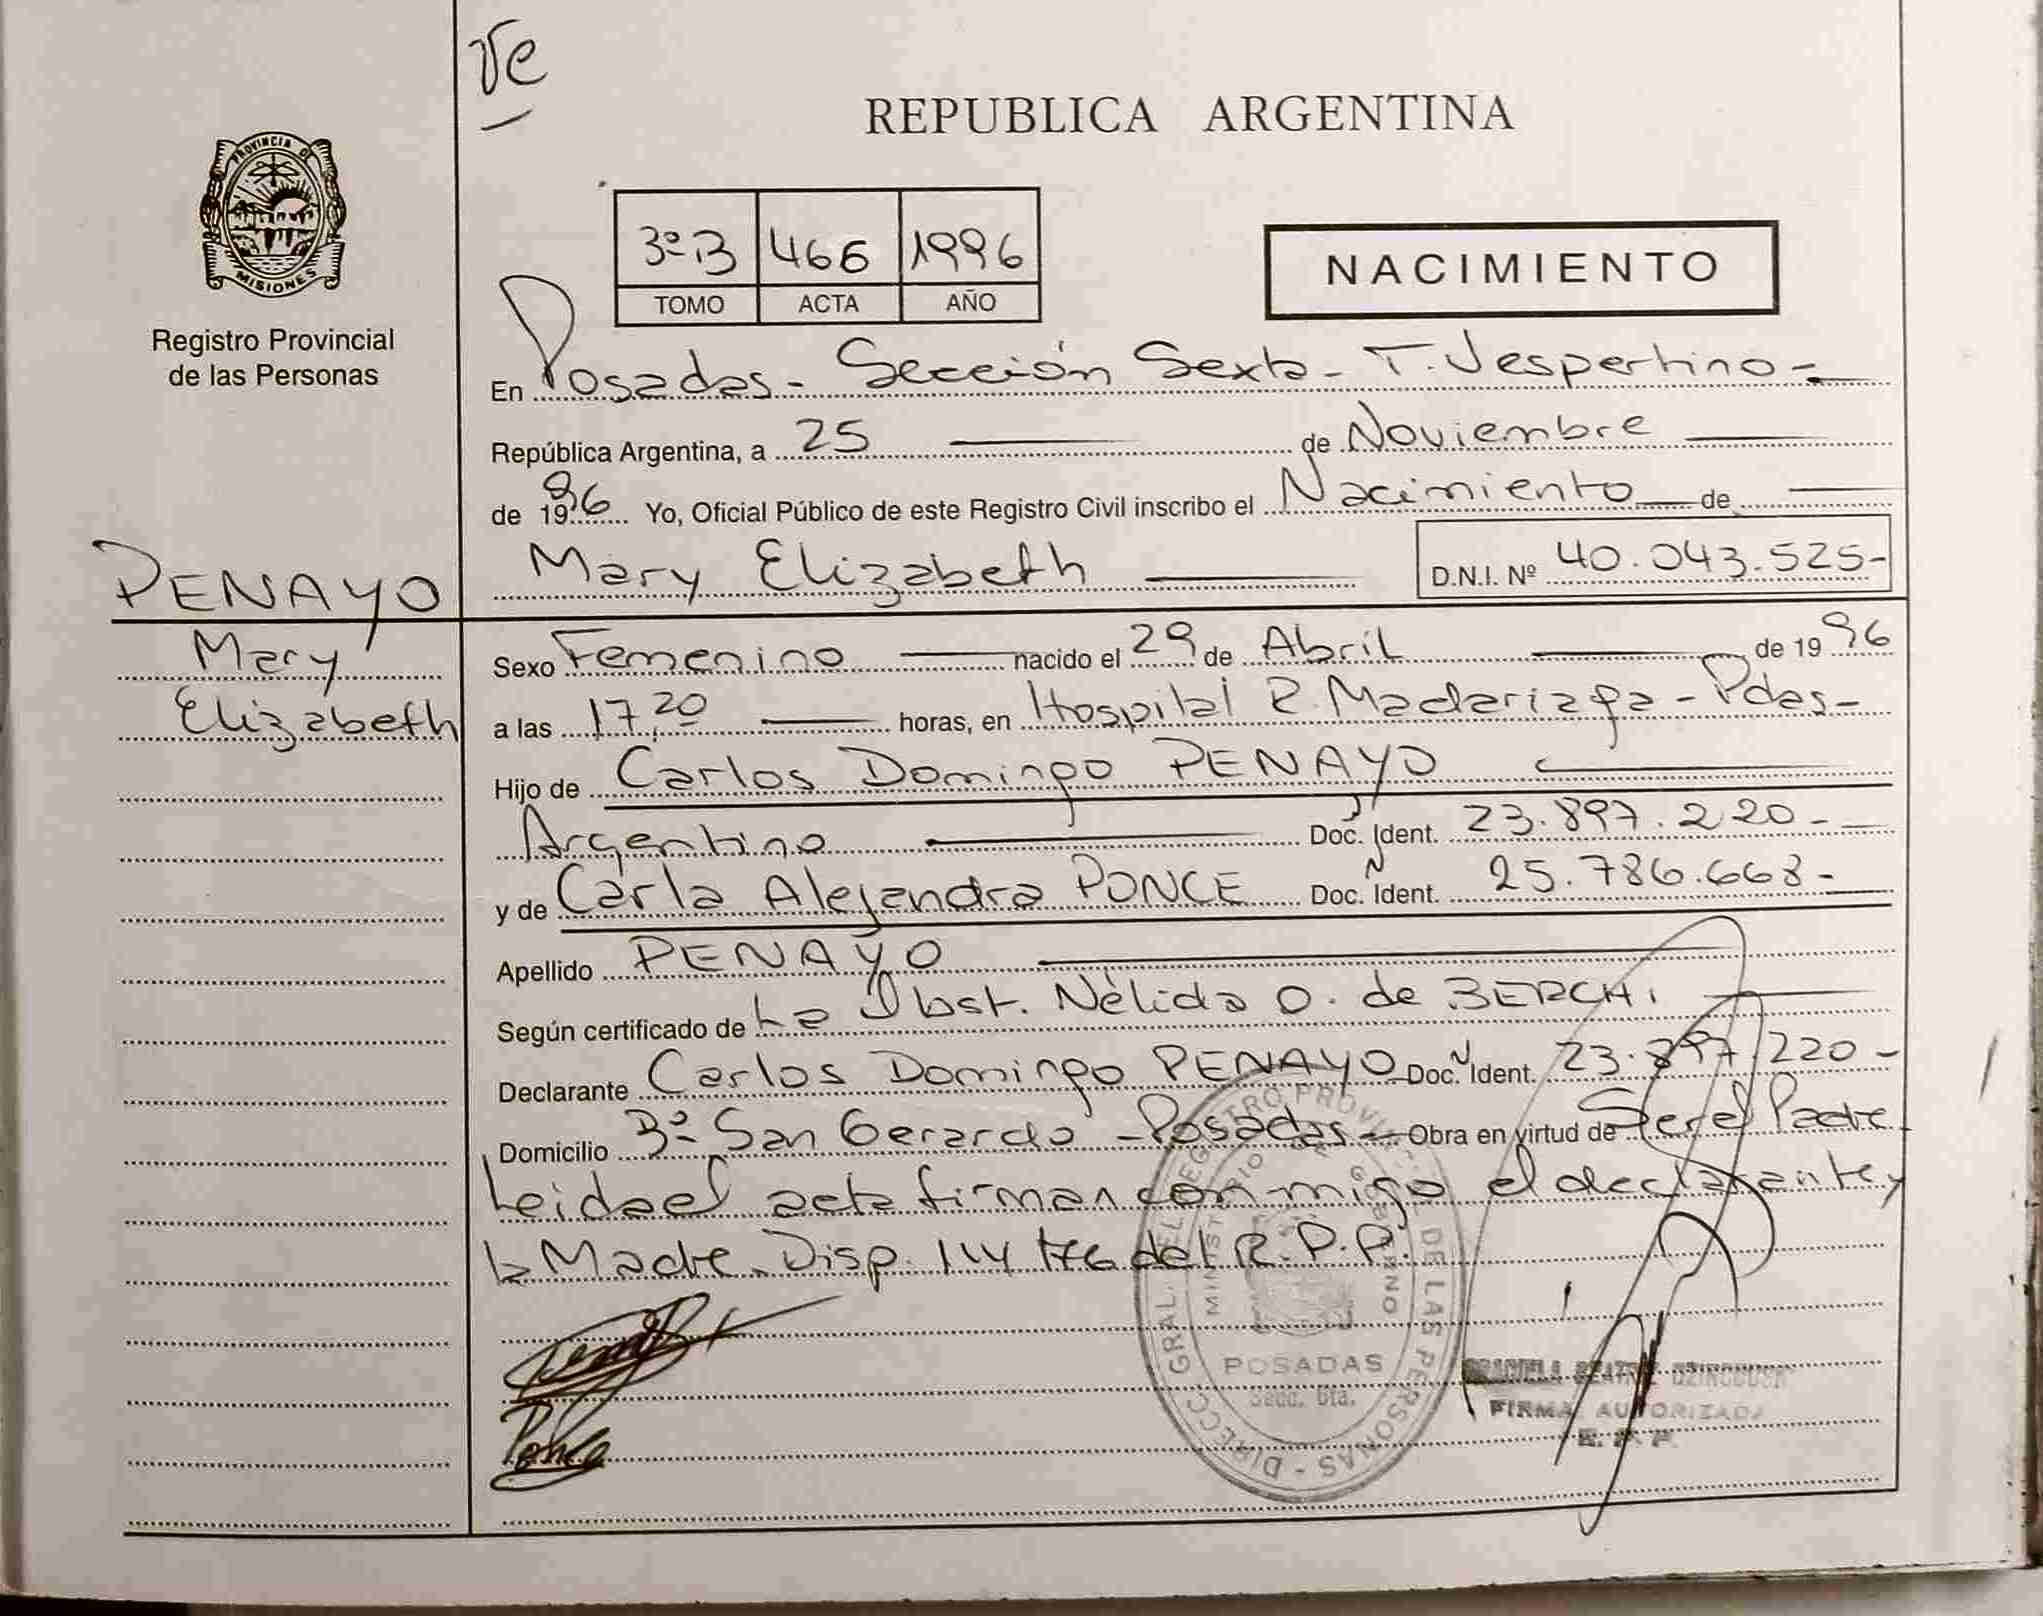 Ve
REPUBLICA ARGENTINA
PROVINCIA DE
MISIONES
Registro Provincial
de las Personas
3º B 466 1996
TOMO ACTA AÑO
NACIMIENTO
En Posadas - Sección Sexta - T. Vespertino -
República Argentina, a 25 de Noviembre
de 1996 Yo, Oficial Público de este Registro Civil inscribo el Nacimiento de
Mary Elizabeth D.N.I. Nº 40.043.525-
PENAYO
Mary
Elizabeth
Sexo Femenino nacido el 29 de Abril de 1996
a las 17,20 horas, en Hospital R. Madariaga - Pdas -
Hijo de Carlos Domingo PENAYO
Argentino Doc. Ident. 23.897.220-
y de Carla Alejandra PONCE Doc. Ident. 25.786.668-
Apellido PENAYO
Según certificado de La Obst. Nélida O. de BERCHI
Declarante Carlos Domingo PENAYO Doc. Ident. 23.897.220-
Domicilio Bº San Gerardo - Posadas - Obra en virtud de Ser el Padre
Leida el acta firman conmigo el declarante y
la Madre. Disp. 114 del R.P.P.
DIRECC. GRAL. DEL REGISTRO PROV. DE LAS PERSONAS
MINISTERIO DE GOBIERNO
POSADAS
Secc. 6ta.
Ponce
FIRMA AUTORIZADA